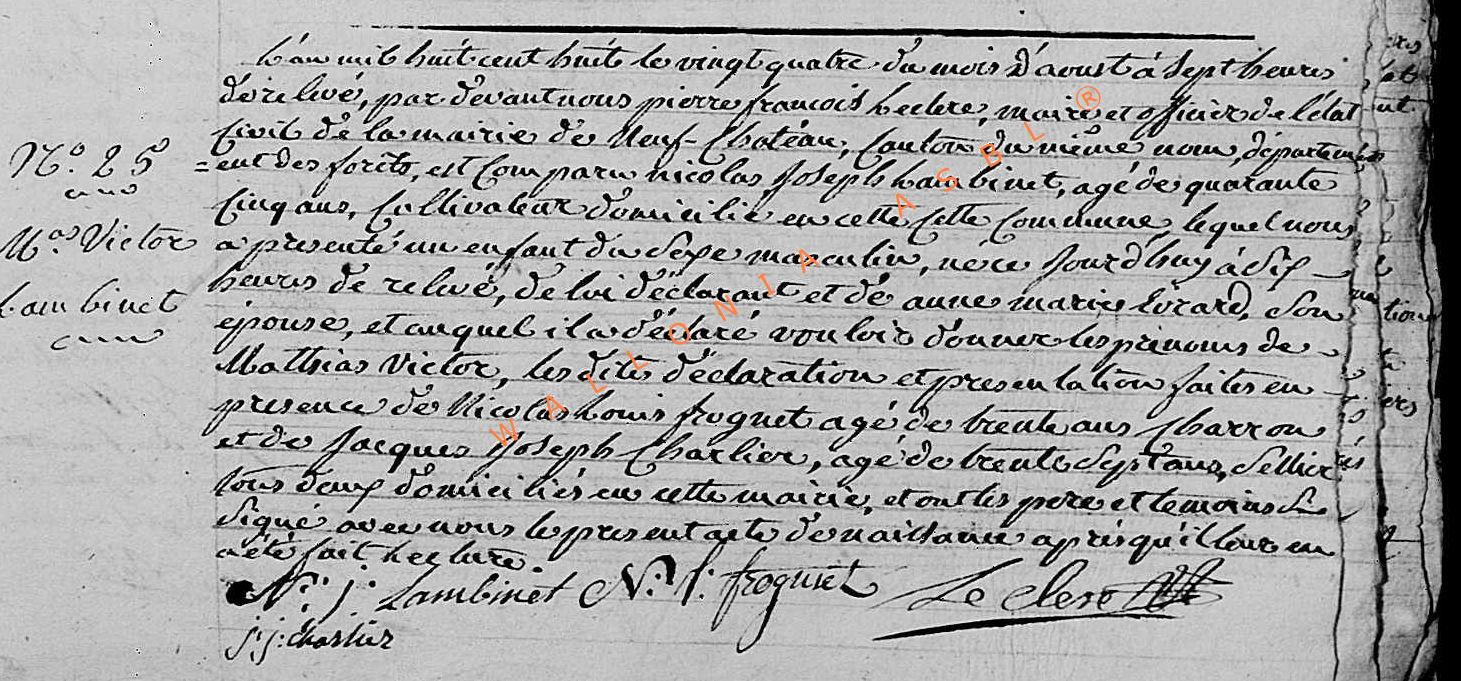 L'an mil huit cent huit le vingt quatre du mois d'aoust à sept heures
de relevé, par devant nous pierre francois Leclerc, maire et officier de l'état
Civil de la mairie de Neuf-Château, Canton du même nom, départem
N.o 25
=ent des forêts, est Comparu nicolas Joseph Lambinet, agé de quarante
Cinq ans, Cultivateur domicilié en cette Cette Commune, lequel nous
M.as Victor
a presenté un enfant du Sexe masculin, né ce Jourd'huy à Six
Lambinet
heures de relevé, de lui déclarant et de anne marie Evrard, Son
épouse, et auquel il a déclaré vouloir donner les prenoms de
Mathias Victor, les dites déclaration et presentation faites en
presence de Nicolas Louis froguet agé de trente ans Charron
et de Jacques Joseph Charlier, agé de trente Sept ans, Sellier
tous deux domiciliés en cette mairie, et ont les pere et temoins
Signé avec nous le present acte de naissance après qu'il leur en
a été fait Lecture.
N. j. Lambinet N. l. froguet Le clerc
j: j: charlier
WALLONIA ASBL ®